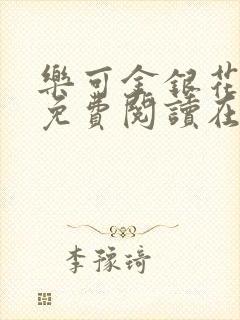 樂可金銀花
免費閱讀在
李豫琦